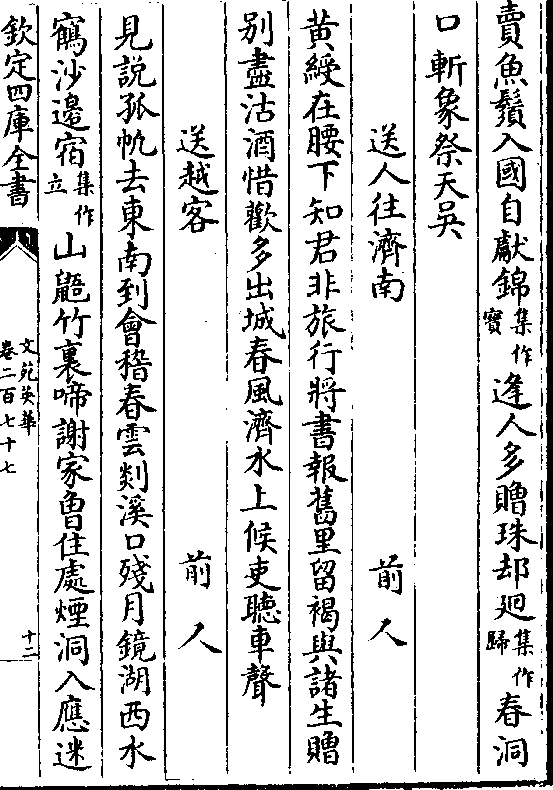 賣魚鬚入國自獻錦集作寳逢人多贈珠却廻集作歸春洞
口斬象祭天吳
送人往濟南 前人
黄綬在腰下知君非旅行將書報舊里留褐與諸生贈
别盡沽酒惜歡多出城春風濟水上候吏聽車聲
送越客 前人
見説孤帆去東南到會稽春雲剡溪口殘月鏡湖西水
鶴沙邉宿集作立山鼯竹裏啼謝家曾住處煙洞入應迷
欽定四庫全書
文苑英華
卷二百七十七
十二